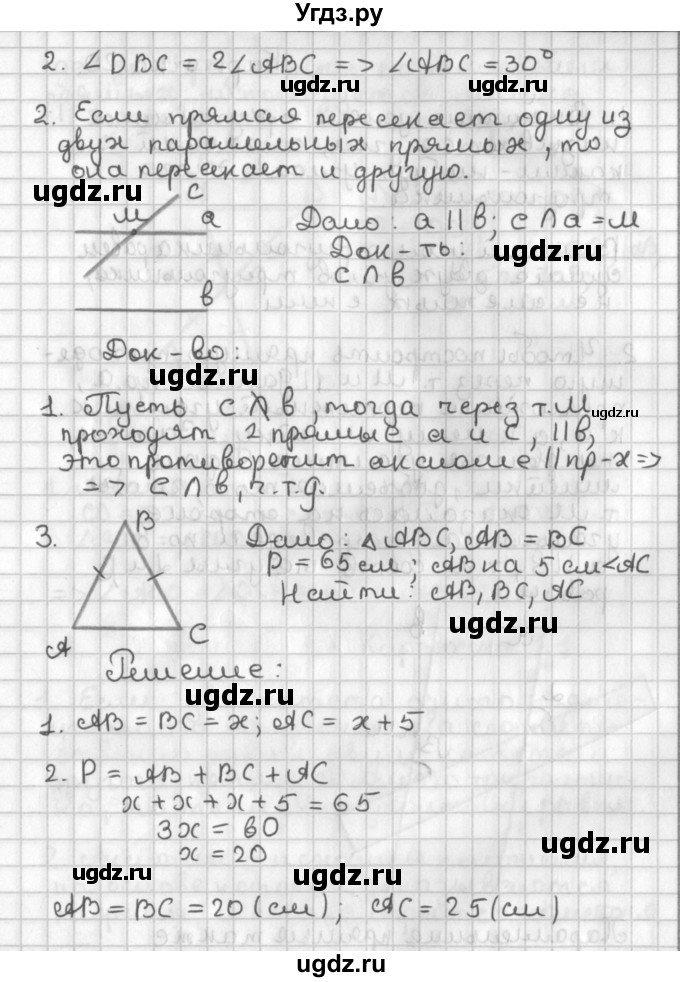 Угдз.ру
2. ∠DBC = 2∠ABC => ∠ABC = 30°
ugdz.ru ugdz.ru
2. Если прямая пересекает одну из
двух параллельных прямых, то
она пересекает и другую.
ugdz.ru
c
м a
Дано: a || в; c ∩ a = м
Док-ть: ugdz.ru
c ∩ в
в
Док-во:
ugdz.ru
1. Пусть c ∩̸ в, тогда через т. М
ugdz.ru
проходят 2 прямые a и c, || в,
это противоречит аксиоме || пр-х =>
=> c ∩ в, ч.т.д.
3. B
Дано: △ ABC, AB = BC
P = 65 см; AB на 5 см < AC
Найти: AB, BC, AC
A C
ugdz.ru
Решение:
ugdz.ru
1. AB = BC = x; AC = x + 5
2. P = AB + BC + AC
x + x + x + 5 = 65
3x = 60
x = 20
ugdz.ru
ugdz.ru ugdz.ru
AB = BC = 20 (см); AC = 25 (см)
ugdz.ru